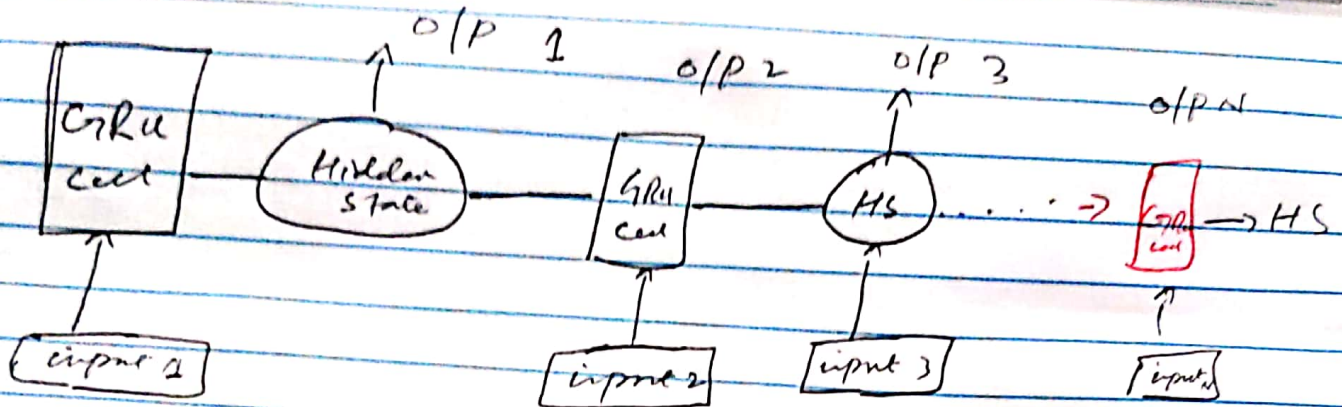 O/P 1
O/P 2
O/P 3
O/P N
GRU
cell
Hidden
State
GRU
cell
HS
GRU
cell
HS
input 1
input 2
input 3
input N